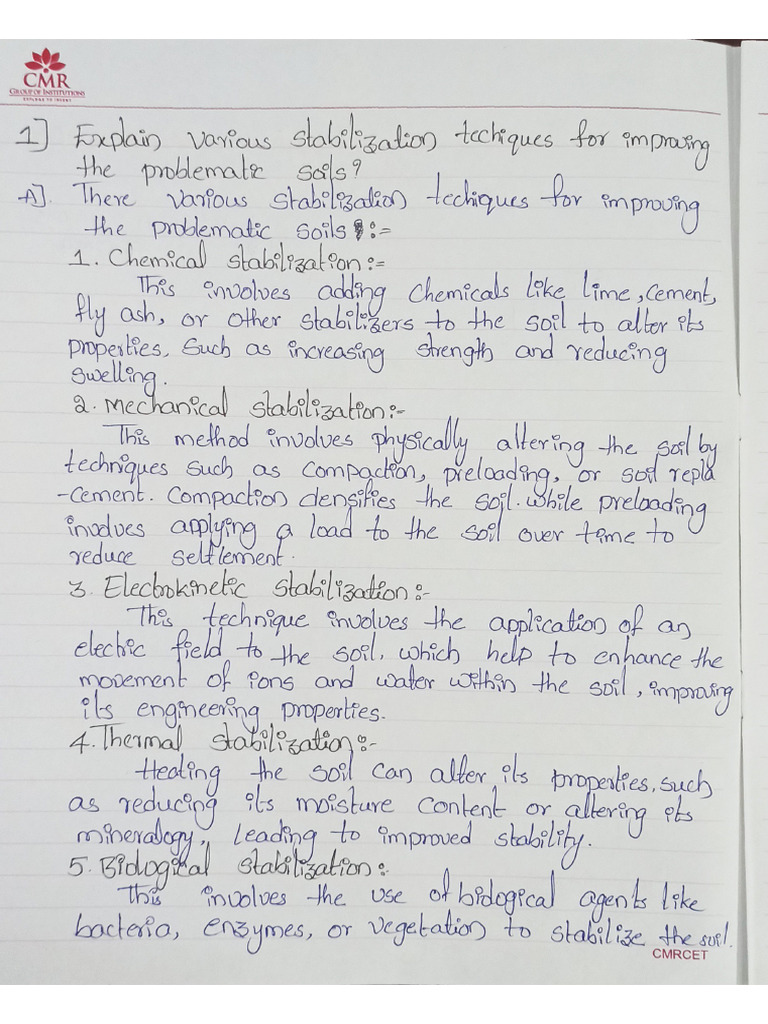 CMR
GROUP OF INSTITUTIONS
EXPLORE TO INVENT
1] Explain various stabilization techiques for improving
the problematic soils?
A]. There various stabilization techiques for improving
the problematic soils :-
1. Chemical stabilization:-
This involves adding chemicals like lime, cement,
fly ash, or other stabilizers to the soil to alter its
properties, such as increasing strength and reducing
swelling.
2. Mechanical stabilization:-
This method involves physically altering the soil by
techniques such as compaction, preloading, or soil repla
-cement. Compaction densifies the soil. while preloading
involves applying a load to the soil over time to
reduce settlement.
3. Electrokinetic stabilization:-
This technique involves the application of an
electric field to the soil, which help to enhance the
movement of ions and water within the soil, improving
its engineering properties.
4. Thermal stabilization:-
Heating the soil can alter its properties, such
as reducing its moisture content or altering its
mineralogy, leading to improved stability.
5. Biological stabilization:-
This involves the use of biological agents like
bacteria, enzymes, or vegetation to stabilize the soil.
CMRCET